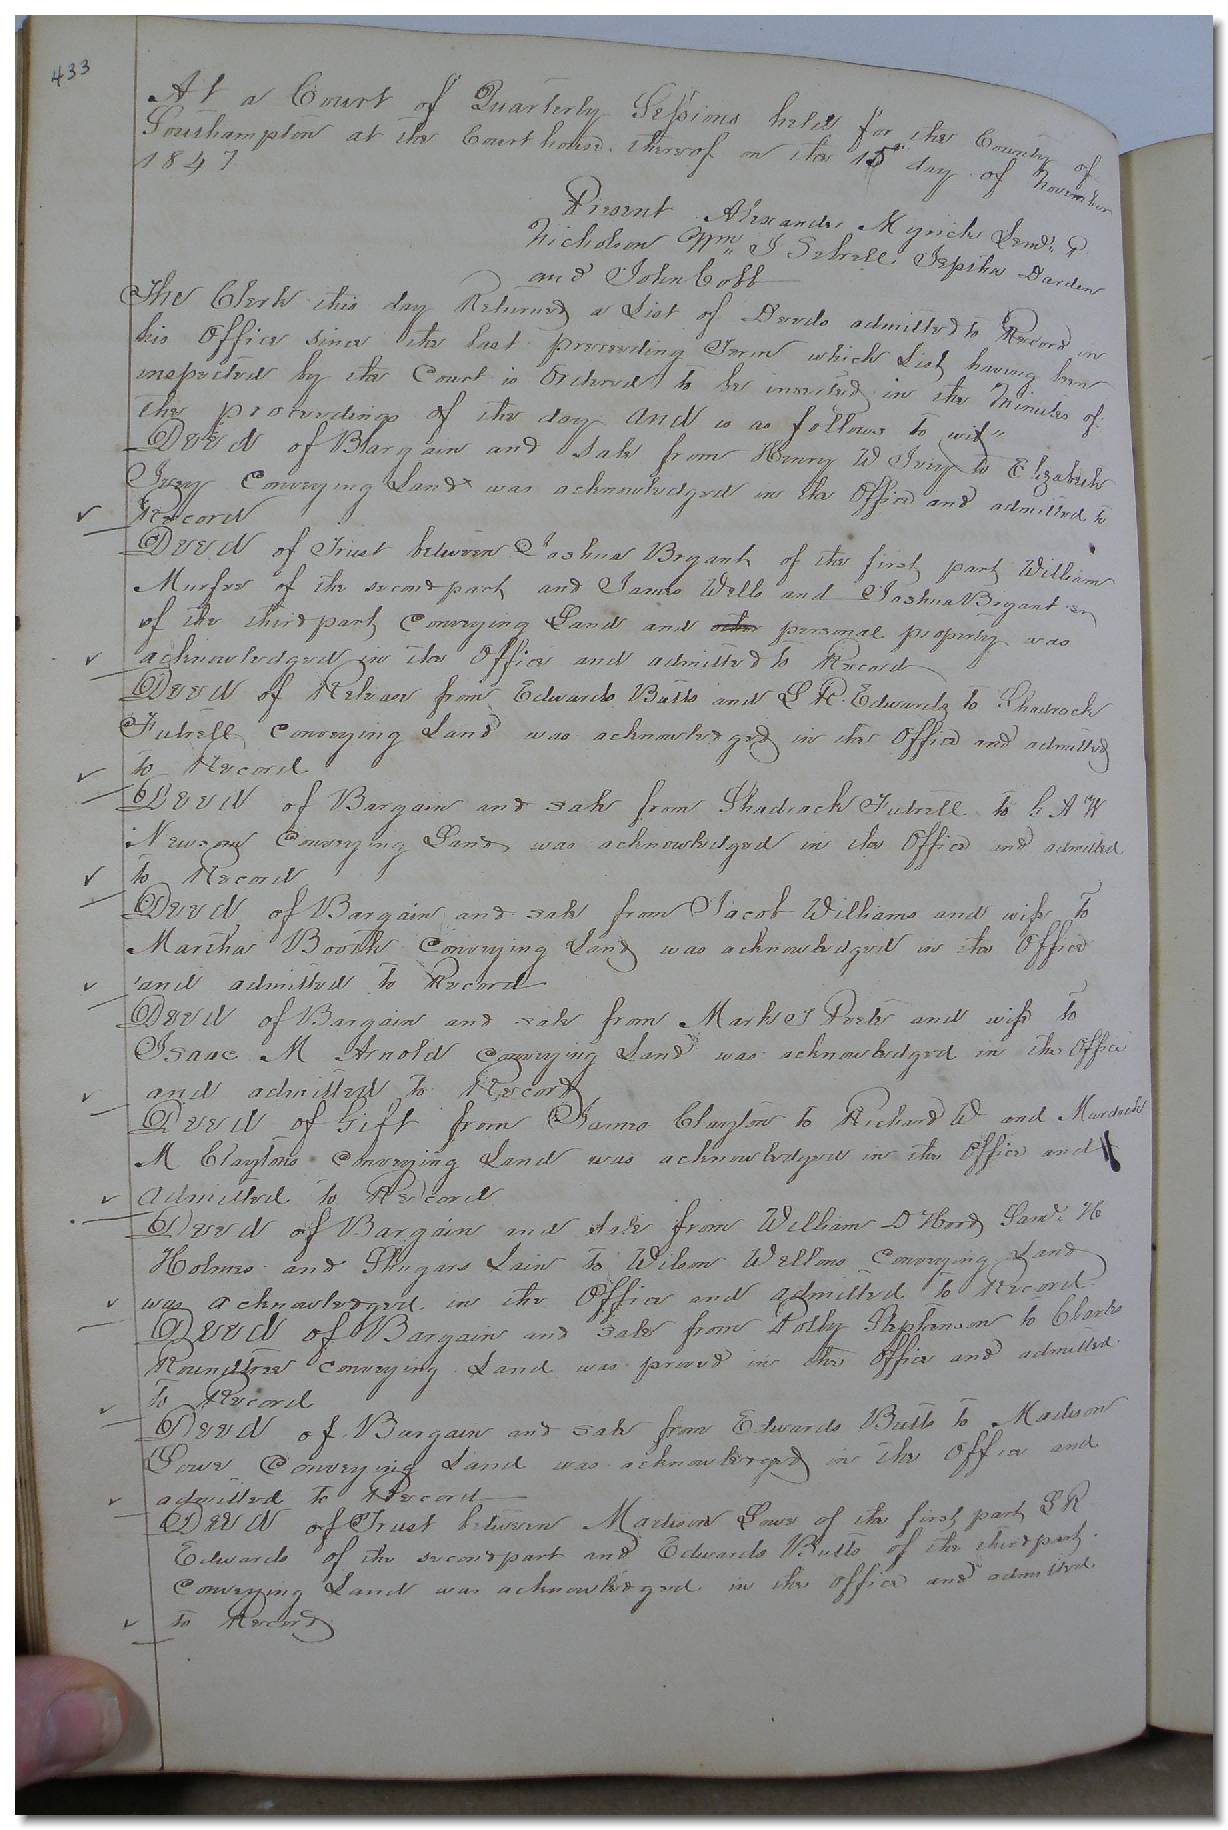 433
At a Court of Quarterly Sessions held for the County of
Southampton at the Court house thereof on the 15th day of November
1847
Present Alexander Myrick Lem'l P
Nicholson Wm J Sebrell Jepitha Darden
and John Cobb
The Clerk this day Returned a List of Deeds admitted to Record in
his Office since the last preceeding Term which List having been
inspected by the Court is Ordered to be inserted in the Minutes of
the proceedings of the day and is as follows to wit"
Deed of Bargain and Sale from Henry W Ivey to Elizabeth
Ivey Conveying Land was acknowledged in the Office and admitted to
Record
Deed of Trust between Joshua Bryant of the first part William
Murfee of the second part and James Wells and Joshua Bryant sr
of the third part Conveying Land and other personal property was
acknowledged in the Office and admitted to Record
Deed of Release from Edwards Butts and S R Edwards to Shadrach
Futrell Conveying Land was acknowledged in the Office and admitted
to Record
Deed of Bargain and sale from Shadrach Futrell to G A W
Newsom Conveying Land was acknowledged in the Office and admitted
to Record
Deed of Bargain and sale from Jacob Williams and wife to
Martha Booth Conveying Land was acknowledged in the Office
and admitted to Record
Deed of Bargain and sale from Mark J Pope and wife to
Isaac M Arnold Conveying Land was acknowledged in the Office
and admitted to Record
Deed of Gift from James Clayton to Richard W and Murdock
M Claytons Conveying Land was acknowledged in the Office and
admitted to Record
Deed of Bargain and Sale from William D Hood Saml H
Holmes and Shugars Lain to Wilson Wellons Conveying Land
was acknowledged in the Office and admitted to Record
Deed of Bargain and sale from Polly Stephenson to Charles
Roundtree Conveying Land was proved in the Office and admitted
to Record
Deed of Bargain and sale from Edwards Butts to Madison
Lowe Conveying Land was acknowledged in the Office and
admitted to Record
Deed of Trust between Madison Lowe of the first part S R
Edwards of the second part and Edwards Butts of the third part
Conveying Land was acknowledged in the Office and admitted
to Record